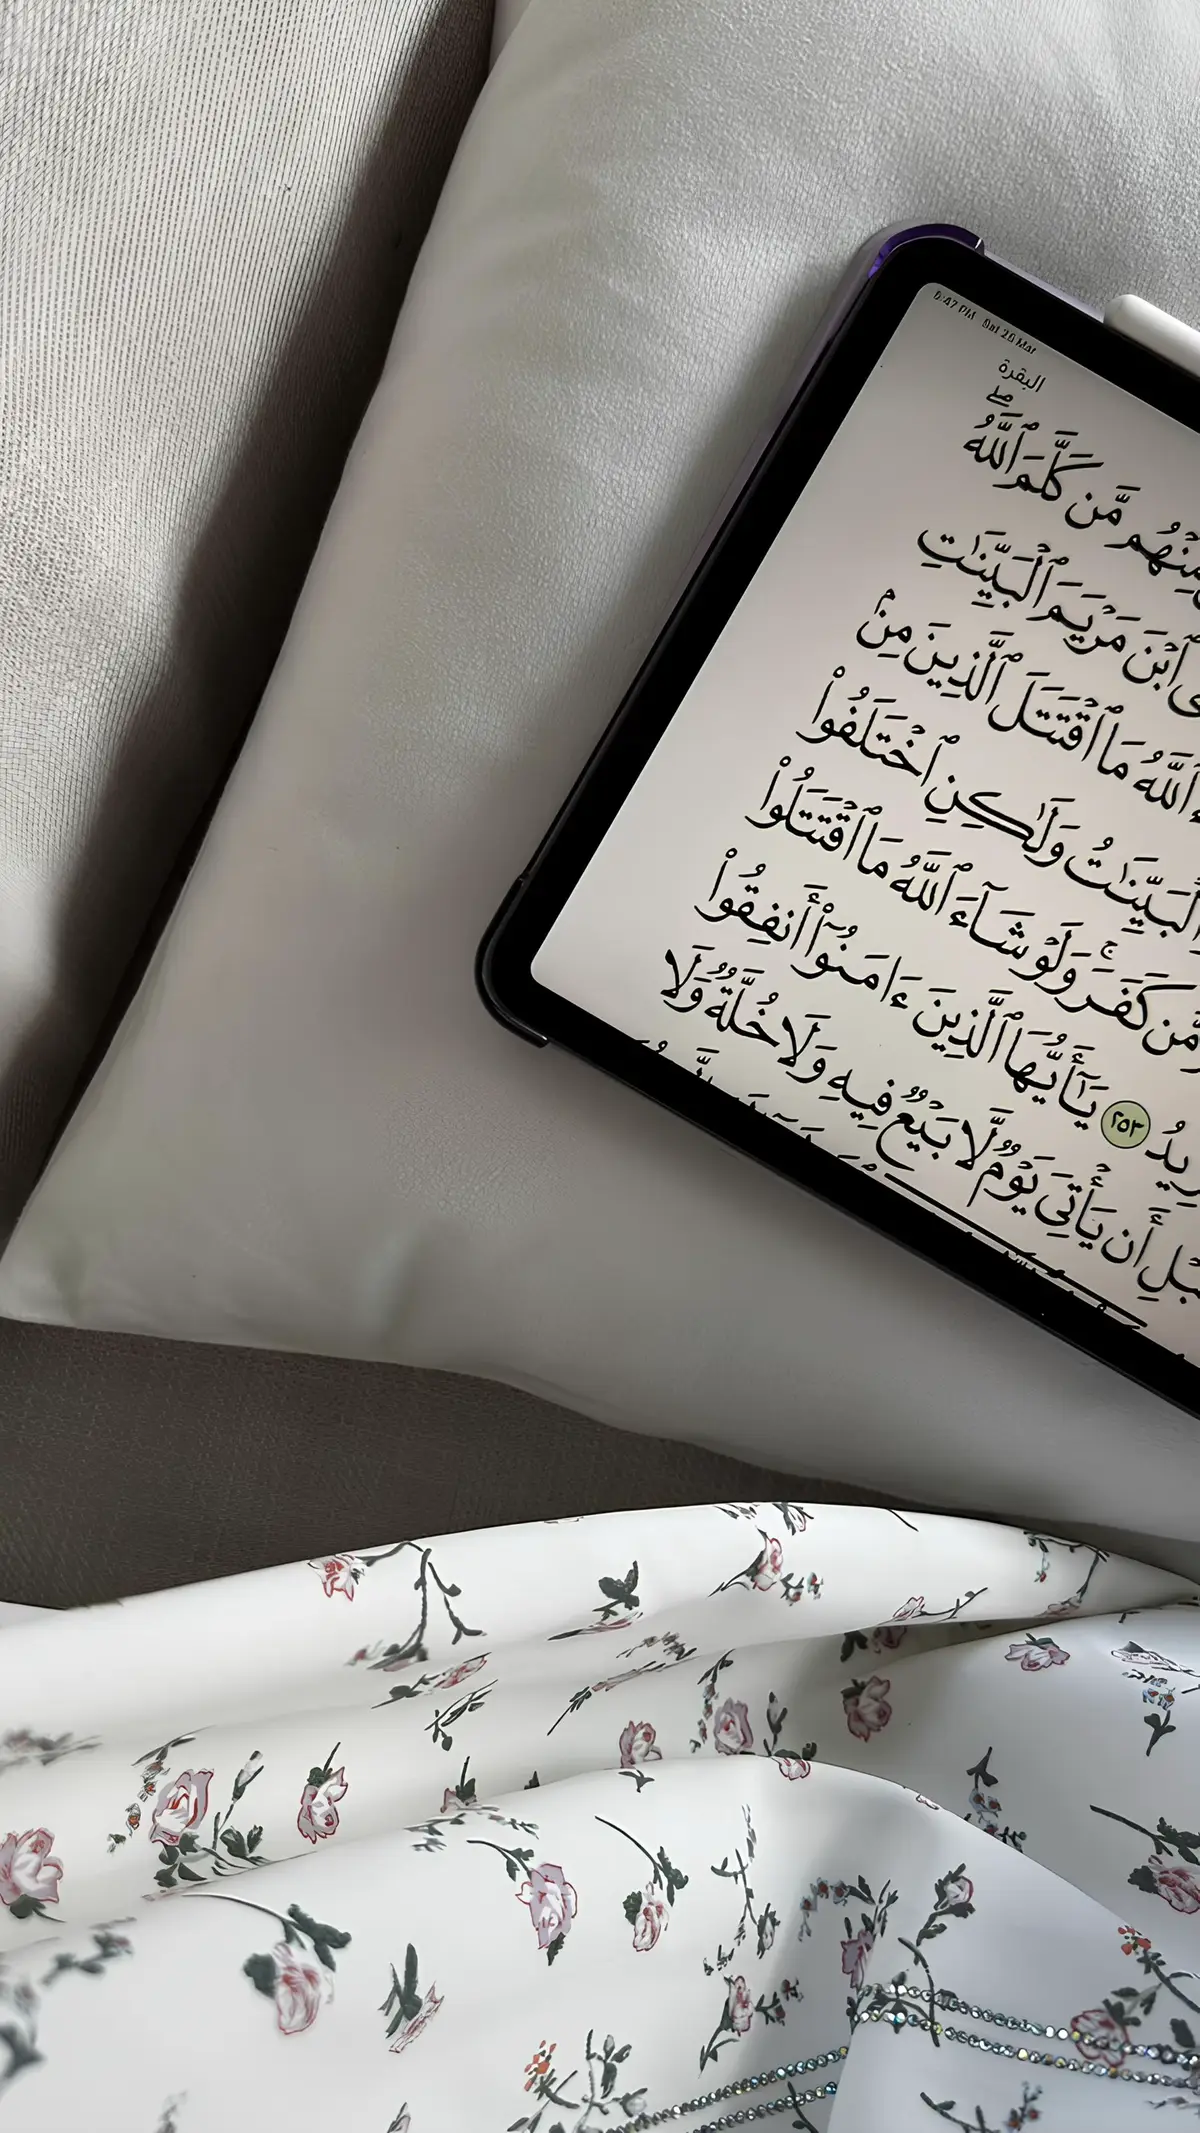 PM Sat 26 Mar
البقرة
مِنْهُم مَّن كَلَّمَ ٱللَّهُ ۖ
ٱبْنَ مَرْيَمَ ٱلْبَيِّنَٰتِ
ٱللَّهُ مَا ٱقْتَتَلَ ٱلَّذِينَ مِنۢ
ٱلْبَيِّنَٰتُ وَلَٰكِنِ ٱخْتَلَفُوا۟
مَّن كَفَرَ ۚ وَلَوْ شَآءَ ٱللَّهُ مَا ٱقْتَتَلُوا۟
يُرِيدُ ٢٥٣ يَٰٓأَيُّهَا ٱلَّذِينَ ءَامَنُوٓا۟ أَنفِقُوا۟
قَبْلِ أَن يَأْتِىَ يَوْمٌ لَّا بَيْعٌ فِيهِ وَلَا خُلَّةٌ وَلَا